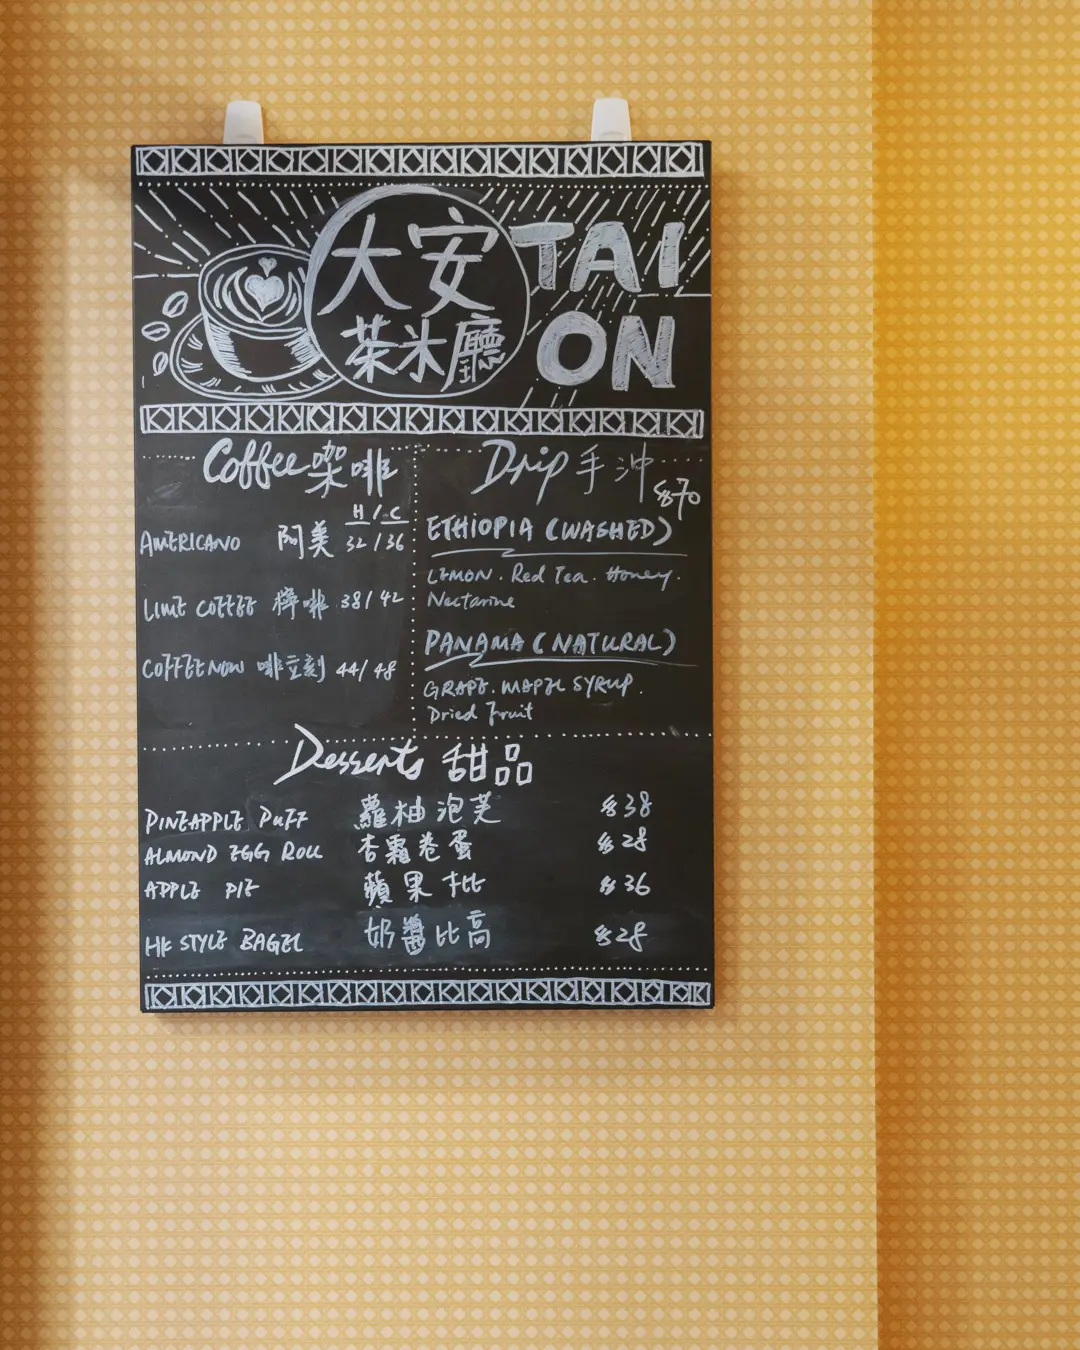 大安
茶米廳
TAI
ON
Coffee 咖啡
H / C
AMERICANO 阿美 32 / 36
LIME COFFEE 檸啡 38 / 42
COFFEE NOW 啡立刻 44 / 48
Drip 手沖
$70
ETHIOPIA (WASHED)
LEMON. Red Tea. Honey.
Nectarine
PANAMA (NATURAL)
GRAPE. MAPEL SYRUP.
Dried Fruit
Desserts 甜品
PINEAPPLE PUFF 蘿柚泡芙 $38
ALMOND EGG ROLL 杏霜卷蛋 $28
APPLE PIE 蘋果批 $36
HK STYLE BAGEL 奶醬比高 $28